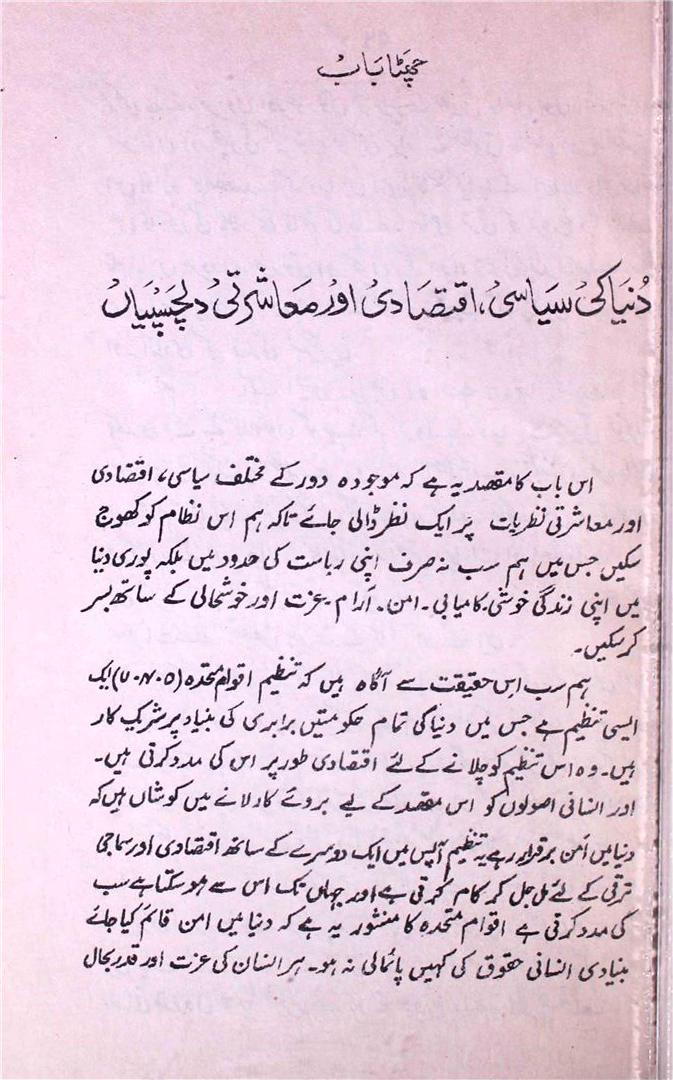 چھٹا باب
دُنیا کی سیاسی، اقتصادی اور معاشرتی دلچسپیاں
اس باب کا مقصد یہ ہے کہ موجودہ دور کے مختلف سیاسی، اقتصادی
اور معاشرتی نظریات پر ایک نظر ڈالی جائے تاکہ ہم اس نظام کو کھوج
سکیں جس میں ہم سب نہ صرف اپنی ریاست کی حدود میں بلکہ پوری دنیا
میں اپنی زندگی خوشی۔کامیابی۔امن۔ آرام۔عزت اور خوشحالی کے ساتھ بسر
کرسکیں۔
ہم سب اس حقیقت سے آگاہ ہیں کہ تنظیم اقوام متحدہ (U.N.O) ایک
ایسی تنظیم ہے جس میں دنیا کی تمام حکومتیں برابری کی بنیاد پر شریک کار
ہیں۔ وہ اس تنظیم کو چلانے کے لئے اقتصادی طور پر اس کی مدد کرتی ہیں۔
اور انسانی اصولوں کو اس مقصد کے لیے بروئے کار لانے میں کوشاں ہیں کہ
دنیا میں امن برقرار رہے یہ تنظیم آپس میں ایک دوسرے کے ساتھ اقتصادی اور سماجی
ترقی کے لئے مل جل کر کام کرتی ہے اور جہاں تک اس سے ہو سکتا ہے سب
کی مدد کرتی ہے اقوام متحدہ کا منشور یہ ہے کہ دنیا میں امن قائم کیا جائے
بنیادی انسانی حقوق کی کہیں پائمالی نہ ہو۔ ہر انسان کی عزت اور قدر بحال